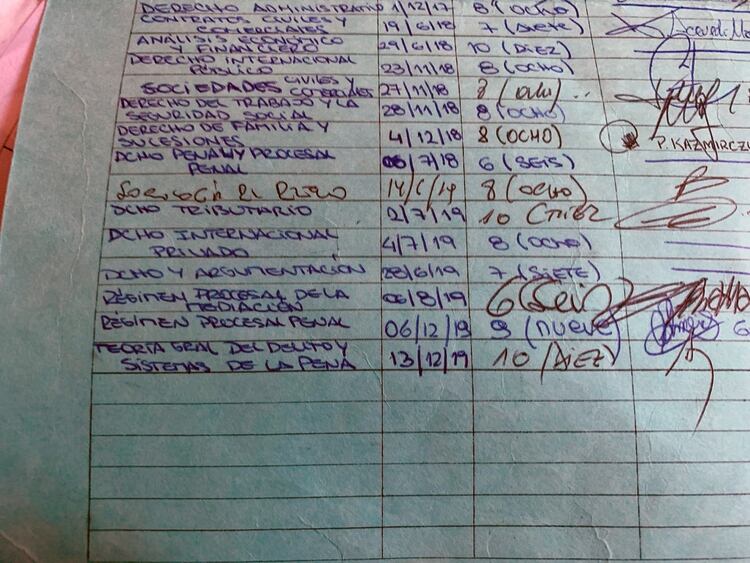 DERECHO ADMINISTRATIVO 1/12/17 8 (OCHO)
CONTRATOS CIVILES Y
COMERCIALES 19/6/18 7 (SIETE)
ANÁLISIS ECONÓMICO
Y FINANCIERO 29/6/18 10 (DIEZ)
DERECHO INTERNACIONAL
PÚBLICO 23/11/18 8 (OCHO)
SOCIEDADES CIVILES Y
COMERCIALES 27/11/18 8
DERECHO DEL TRABAJO Y LA
SEGURIDAD SOCIAL 28/11/18 8 (OCHO)
DERECHO DE FAMILIA Y
SUCESIONES 4/12/18 8 (OCHO)
P. KAZMIRCZU
DCHO PENAL Y PROCESAL
PENAL 06/7/18 6 (SEIS)
8 (OCHO)
DCHO TRIBUTARIO 2/7/19 10
DCHO INTERNACIONAL
PRIVADO 4/7/19 8 (OCHO)
DCHO Y ARGUMENTACIÓN 28/6/19 7 (SIETE)
RÉGIMEN PROCESAL DE LA
MEDIACIÓN 06/8/19 6 (Seis)
RÉGIMEN PROCESAL PENAL 06/12/19 9 (NUEVE)
TEORÍA GRAL DEL DELITO Y
SISTEMAS DE LA PENA 13/12/19 10 (DIEZ)